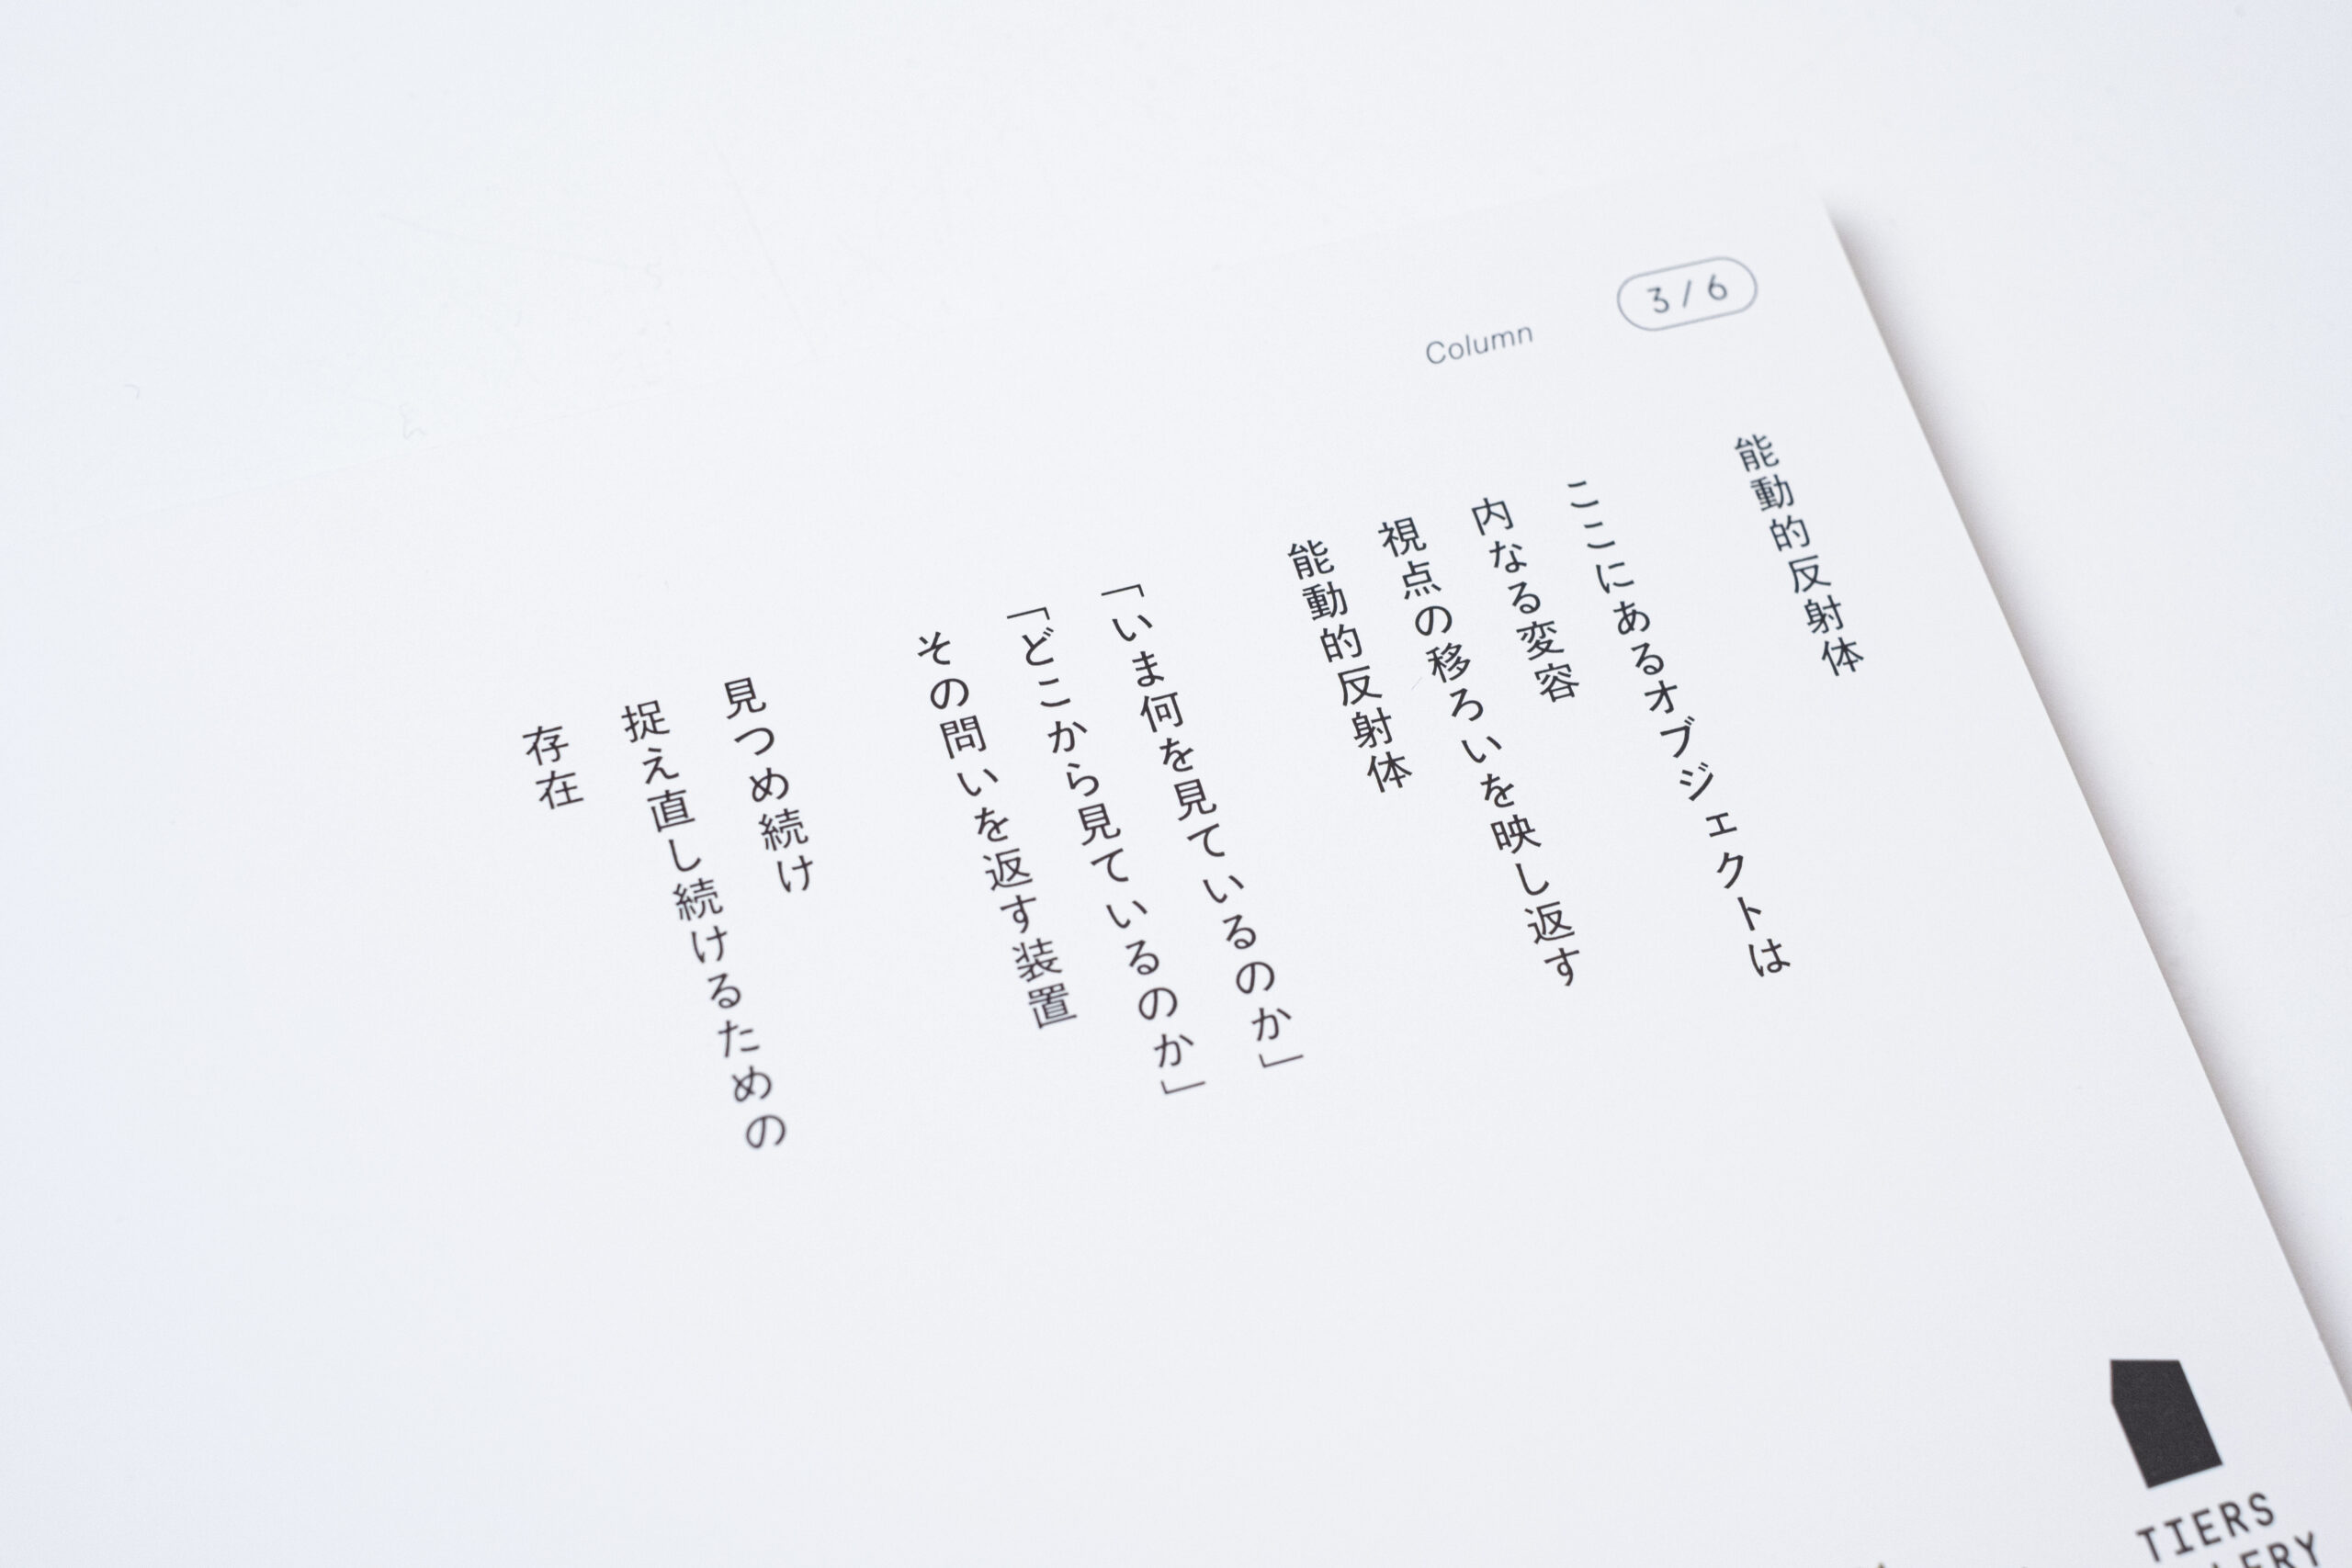 3 / 6
Column
能動的反射体
ここにあるオブジェクトは
内なる変容
視点の移ろいを映し返す
能動的反射体
「いま何を見ているのか」
「どこから見ているのか」
その問いを返す装置
見つめ続け
捉え直し続けるための
存在
TIERS